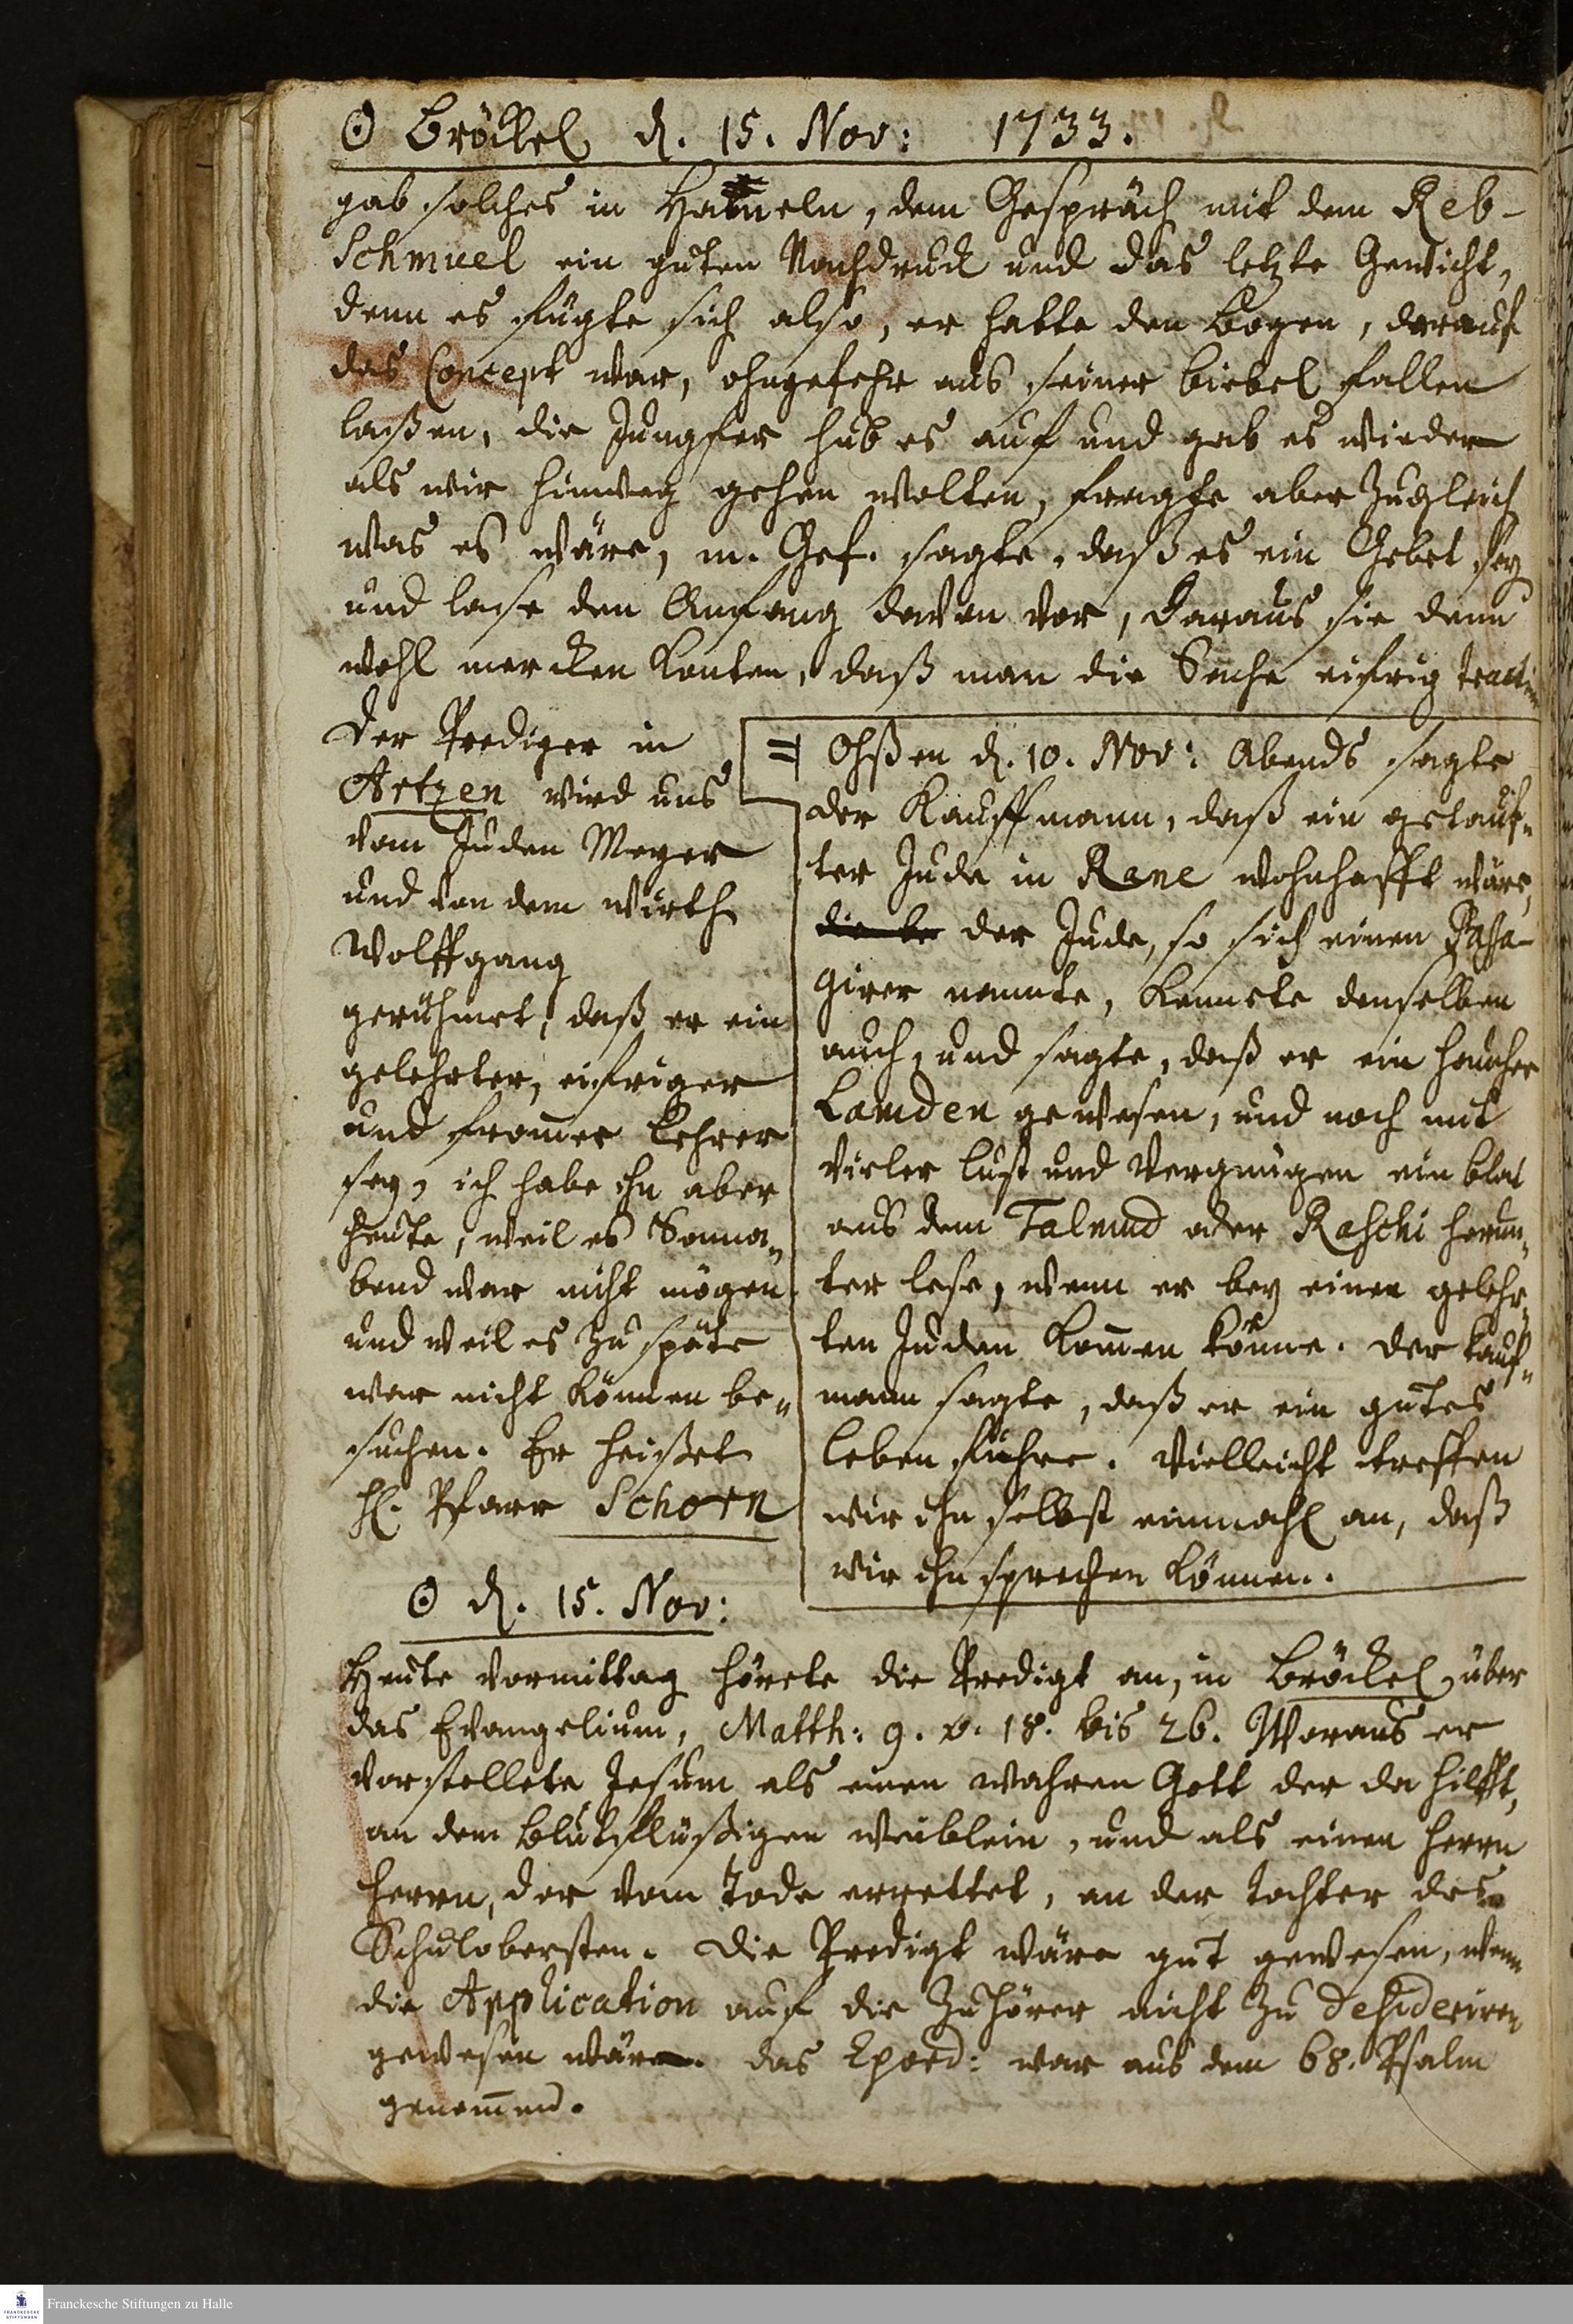 ☉ Bröckel d. 15. Nov: 1733.
gab solches in Hameln, dem Gespräch mit dem Reb-
Schmuel ein guten Nachdruck und das letzte Gewicht,
denn es fügte sich also, er hatte den Bogen, darauf
das Concept war, ohngefehr aus seiner Biebel fallen
laßen, die Jungfer hub es auf und gab es wieder
als wir hinweg gehen wolten, fragte aber zugleich
was es wäre, m. Gef. sagte, daß es ein Gebet sey
und lase den Anfang davon vor, daraus sie denn
wohl mercken konten, daß man die Sache eifrig
Der Prediger in
Artzen wird uns
vom Juden Meyer
und von dem Wirth
Wolffgang
gerühmet, daß er ein
gelehrter, eifriger
und from̅er Lehrer
sey, ich habe ihn aber
heute, weil es Sonna„
bend war nicht mögen
und weil es zu späte
war nicht können be„
suchen. Er heißet
H. Pfarr Schorn
Ohßen d. 10. Nov: Abends sagte
der Kauffmann, daß ein getauf„
ter Jude in Rane wohnhafft wäre,
der Jude, so sich einen Passa-
girer nannte, kennete denselben
auch, und sagte, daß er ein
Lamden gewesen, und noch mit
vieler Lust und Vergnügen ein blat
aus dem Talmud oder Raschi herun„
ter lese, wenn er bey einen gelehr„
ten Juden kom̅en könne. Der Kauf„
mann sagte, daß er ein gutes
Leben führe. Vielleicht treffen
wir ihn selbst einmahl an, daß
wir ihn sprechen können.
☉ d. 15. Nov:
Heute Vormittag hörete die Predigt an, in Bröckel, über
das Evangelium, Matth: 9. v. 18. bis 26. Woraus er
vorstellete Jesum als einen wahren Gott der da hilfft,
an dem Blutflüßigen Weiblein, und als einen Herrn
Herrn, der vom Tode errettet, an der Tochter des
Schulobersten. Die Predigt wäre gut gewesen, wenn
die Application auf die Zuhörer nicht zu desideriren
gewesen wäre. das Exord: war aus dem 68. Psalm
genom̅en.
Franckesche Stiftungen zu Halle